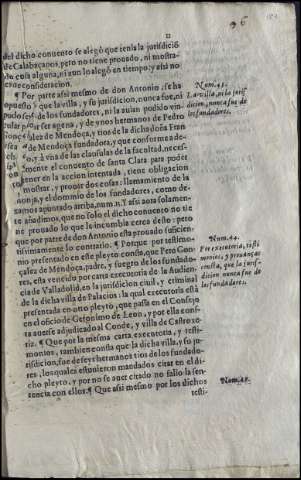 11
96
del dicho conuento se alegò que tenia la jurisdició
de Calabaçanos, pero no tiene prouado, ni mostra-
do cosa alguna, ni aun lo alegò en tiempo: y assi no
era consideracion.
¶ Por parte assi mesmo de don Antonio, se ha
opuesto que la villa, y su jurisdicion, nunca fue, ni
pudo ser de los fundadores, ni la auian podido vin-
cular por ser agena, y de vnos hermanos de Pedro
Gonçalez de Mendoça, y tios de la dicha doña Fran
cisca de Mendoça fundadora, y que conforme a de-
recho, y à vna de las clausulas de la facultad, neces-
sariamente el conuento de santa Clara para poder
tener en la accion intentada, tiene obligacion
mostrar, y prouar dos cosas: llamamiento de la
monja, y el dominio de los fundadores, como de-
xamos apuntado arriba, num. 1. Y assi aora solamen-
te añadimos, que no solo el dicho conuento no tie
ne prouado lo que le incumbia cerca desto: pero
que por parte de don Antonio està prouado suficien
tissimamente lo contrario. ¶ Porque por testimo-
nio presentado en este pleyto consta, que Pero Con
çalez de Mendoça, padre, y suegro de los fundado-
res, està vencido por carta executoria de la Audien
cia de Valladolid, en la jurisdicion ciuil, y criminal
de la dicha villa de Palacios: la qual executoria està
presentada en otro pleyto, que passa en el Consejo
en el oficio de Geronimo de Leon, y por ella cons
ta auerse adjudicado al Conde, y villa de Castroxe-
riz. ¶ Que por la mesma carta executoria, y testi-
monios, tambien consta que la dicha villa, y su ju-
risdicion, fue de seys hermanos tios de los fundado-
res, los quales estuuieron mandados citar en el di-
cho pleyto, y por no se auer citado no fallò la sen-
tencia con ellos. ¶ Que assi mesmo por los dichos
testi-
Num. 43.
La villa, ni la juris-
dicion, nunca fue de
los fundadores.
Num. 44.
Por executoria, testi
monios, y prouanças
consta, que la juris-
dicion nunca fue de
los fundadores.
Num. 45.